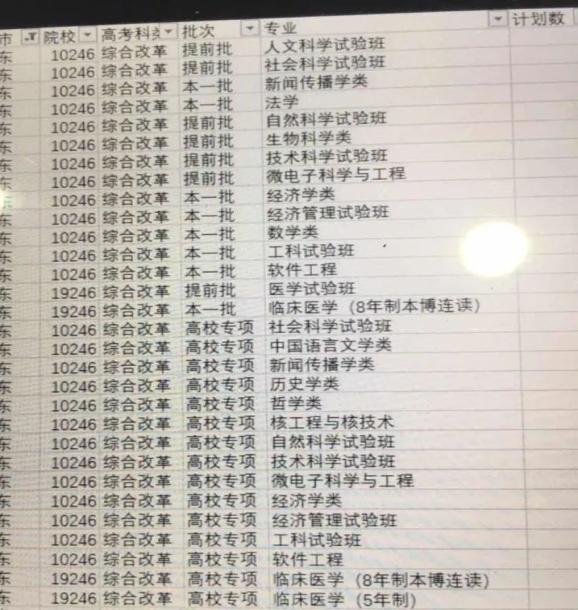 市 院校 高考科类 批次 专业 计划数
东 10246 综合改革 提前批 人文科学试验班
东 10246 综合改革 提前批 社会科学试验班
东 10246 综合改革 本一批 新闻传播学类
东 10246 综合改革 本一批 法学
东 10246 综合改革 提前批 自然科学试验班
东 10246 综合改革 提前批 生物科学类
东 10246 综合改革 提前批 技术科学试验班
东 10246 综合改革 提前批 微电子科学与工程
东 10246 综合改革 本一批 经济学类
东 10246 综合改革 本一批 经济管理试验班
东 10246 综合改革 本一批 数学类
东 10246 综合改革 本一批 工科试验班
东 10246 综合改革 本一批 软件工程
东 19246 综合改革 提前批 医学试验班
东 19246 综合改革 本一批 临床医学（8年制本博连读）
东 10246 综合改革 高校专项 社会科学试验班
东 10246 综合改革 高校专项 中国语言文学类
东 10246 综合改革 高校专项 新闻传播学类
东 10246 综合改革 高校专项 历史学类
东 10246 综合改革 高校专项 哲学类
东 10246 综合改革 高校专项 核工程与核技术
东 10246 综合改革 高校专项 自然科学试验班
东 10246 综合改革 高校专项 技术科学试验班
东 10246 综合改革 高校专项 微电子科学与工程
东 10246 综合改革 高校专项 经济学类
东 10246 综合改革 高校专项 经济管理试验班
东 10246 综合改革 高校专项 工科试验班
东 10246 综合改革 高校专项 软件工程
东 19246 综合改革 高校专项 临床医学（8年制本博连读）
东 19246 综合改革 高校专项 临床医学（5年制）